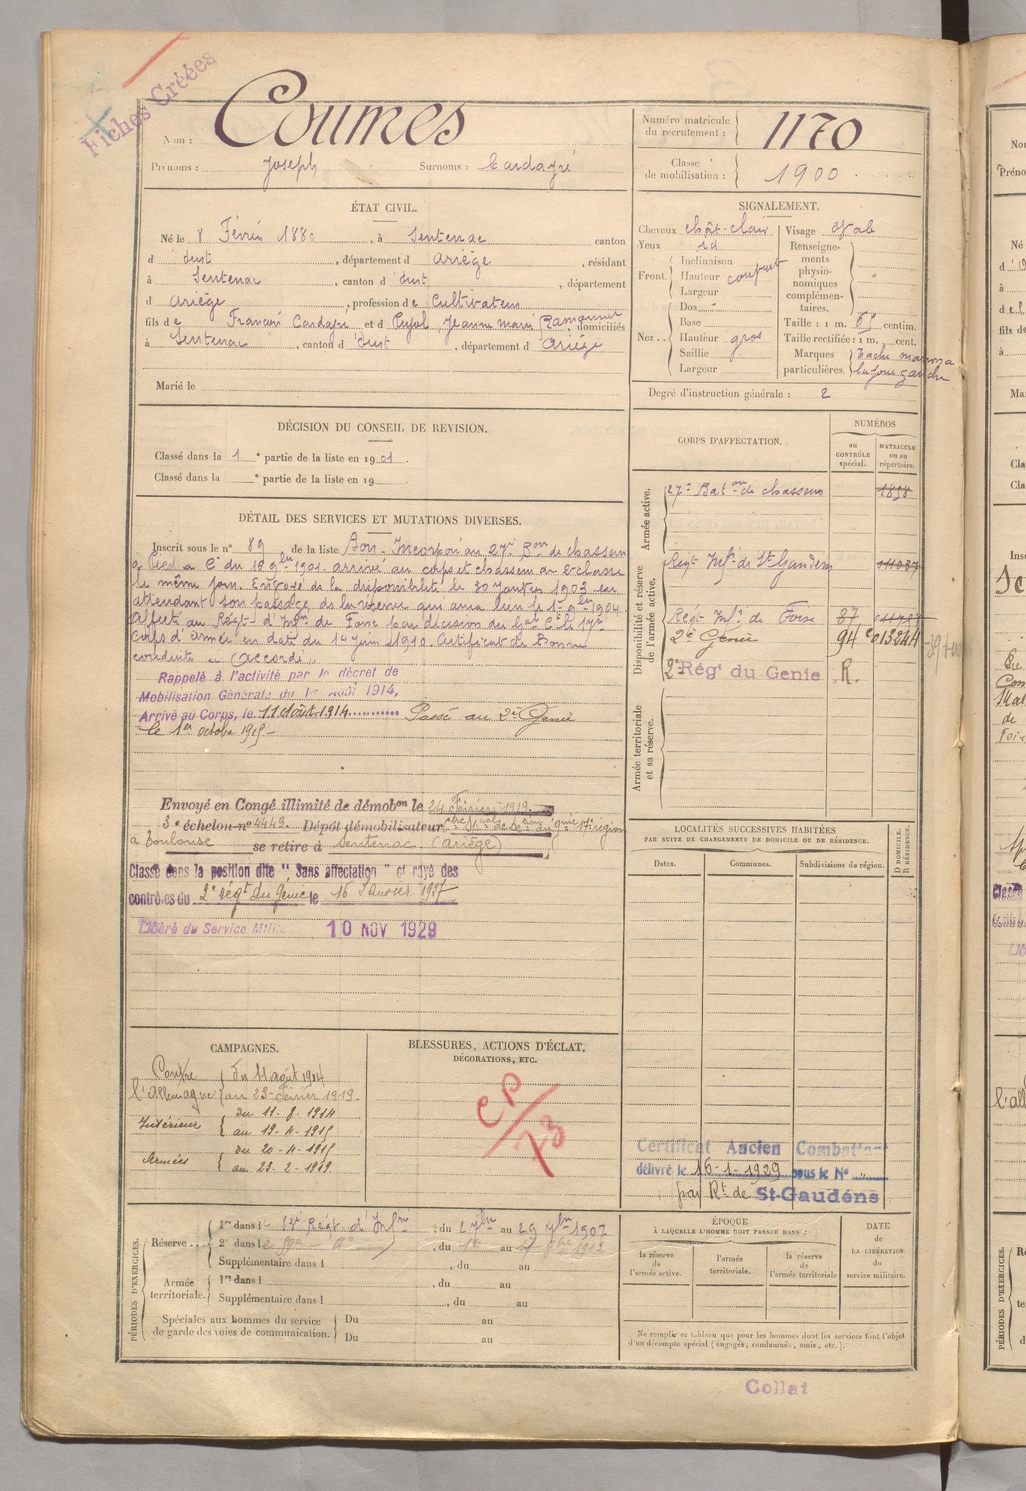 Fiches Créées
Nom : Coumes
Prénoms : Joseph Surnoms : Cardayré
Numéro matricule du recrutement : 1170
Classe de mobilisation : 1900
ÉTAT CIVIL.
Né le 8 Février 1880, à Sentenac canton
d'Oust, département d Ariège, résidant
à Sentenac, canton d'Oust, département
d Ariège, profession de Cultivateur
fils de François Cardayre et d Pujol Jeanne Marie Ramounet domiciliés
à Sentenac, canton d'Oust, département d Ariège
Marié le
SIGNALEMENT.
Cheveux chât-clair Visage oval
Yeux id
Front. Inclinaison
Hauteur
Largeur
Renseignements physionomiques complémentaires. "
Nez .. Dos
Base
Hauteur gros
Saillie
Largeur
Taille : 1 m. centim.
Taille rectifiée : 1 m. cent.
Marques particulières. Tache
gauche
Degré d'instruction générale : 2
DÉCISION DU CONSEIL DE REVISION.
Classé dans la 1e partie de la liste en 1901.
Classé dans la e partie de la liste en 19
CORPS D'AFFECTATION.
NUMÉROS
au CONTRÔLE spécial.
MATRICULE ou au répertoire.
Armée active.
27e Baton de chasseurs 1898
Disponibilité et réserve de l'armée active.
Régt Infie de St Gaudens
Régt Infie de Foix 87
2e Génie 94 013244
2e Régt du Genie R.
Armée territoriale et sa réserve.
DÉTAIL DES SERVICES ET MUTATIONS DIVERSES.
Inscrit sous le n° 89 de la liste Bon. Incorporé au 27e Bon de chasseurs
à Pied à Cr du 15 9bre 1901. arrivé au corps et chasseur de 2e classe
le même jour. Envoyé de la disponibilité le 30 1903 en
attendant son passage dans la réserve qui aura lieu le 1er 9bre 1904
Affecté au Régt d'Infie de Foix par décision du Gal Ct le 17e
corps d'armée en date du 14 Juin 1910. Certificat de Bonne
conduite "Accordé"
Rappelé à l'activité par le décret de
Mobilisation Générale du 1er Août 1914,
Arrivé au Corps, le 11 Août 1914 Passé au 2e Génie
le 1er octobre 1915
Envoyé en Congé illimité de démobon le 24 Février 1919.
3e échelon n° 4449. Dépôt démobilisateur 17e région
à Toulouse se retire à Sentenac (Ariège)
Classé dans la position dite "Sans affectation" et rayé des
contrôles du 2e régt du Génie le 16 Janvier 1927
Libéré du Service Milit 10 NOV 1929
LOCALITÉS SUCCESSIVES HABITÉES
PAR SUITE DE CHANGEMENTS DE DOMICILE OU DE RÉSIDENCE.
Dates. Communes. Subdivisions de région. D DOMICILE. R RÉSIDENCE.
CAMPAGNES.
Contre l'Allemagne du 11 août 1914
au 23 Février 1919.
Intérieur du 11-8-1914
au 19-4-1915
Armées du 20-4-1915
au 23-2-1919.
BLESSURES, ACTIONS D'ÉCLAT,
DÉCORATIONS, ETC.
CP/73
Certificat Ancien Combattant
délivré le 16-1-1929 sous le N°
par Rt de St-Gaudens
PÉRIODES D'EXERCICES.
Réserve 1re dans l 83e Régt d'Infie, du 2 7bre au 29 7bre 1907
2e dans l, du au 1912
Supplémentaire dans l, du au
Armée territoriale. 1re dans l, du au
Supplémentaire dans l, du au
Spéciales aux hommes du service de garde des voies de communication. Du au
Du au
ÉPOQUE
À LAQUELLE L'HOMME DOIT PASSER DANS :
la réserve de l'armée active.
l'armée territoriale.
la réserve de l'armée territoriale
DATE DE LA LIBÉRATION du service militaire.
Ne remplir ce tableau que pour les hommes dont les services font l'objet
d'un décompte spécial (engagés, condamnés, omis, etc.).
Collat